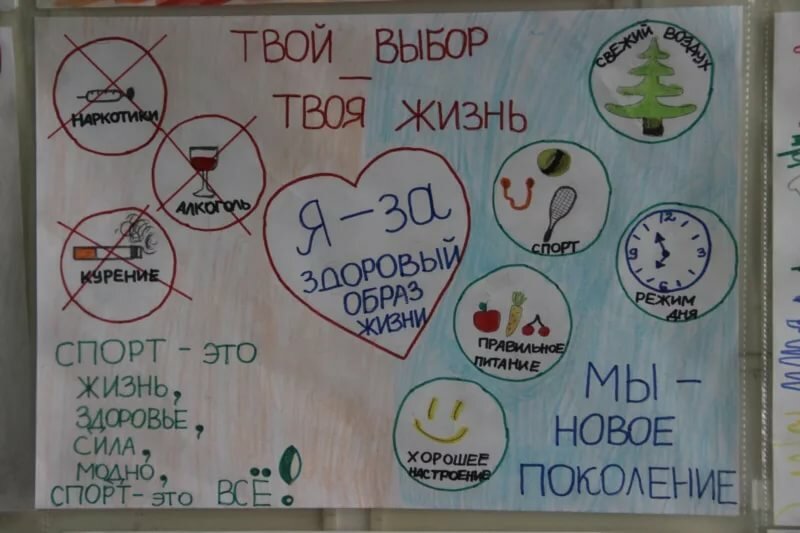 ТВОЙ ВЫБОР
—
ТВОЯ ЖИЗНЬ
НАРКОТИКИ
АЛКОГОЛЬ
КУРЕНИЕ
Я – ЗА
ЗДОРОВЫЙ
ОБРАЗ
ЖИЗНИ
СВЕЖИЙ ВОЗДУХ
СПОРТ
12
3
6
9
РЕЖИМ
ДНЯ
ПРАВИЛЬНОЕ
ПИТАНИЕ
ХОРОШЕЕ
НАСТРОЕНИЕ
СПОРТ – ЭТО
ЖИЗНЬ,
ЗДОРОВЬЕ,
СИЛА,
МОДНО,
СПОРТ – это ВСЁ!
МЫ –
НОВОЕ
ПОКОЛЕНИЕ